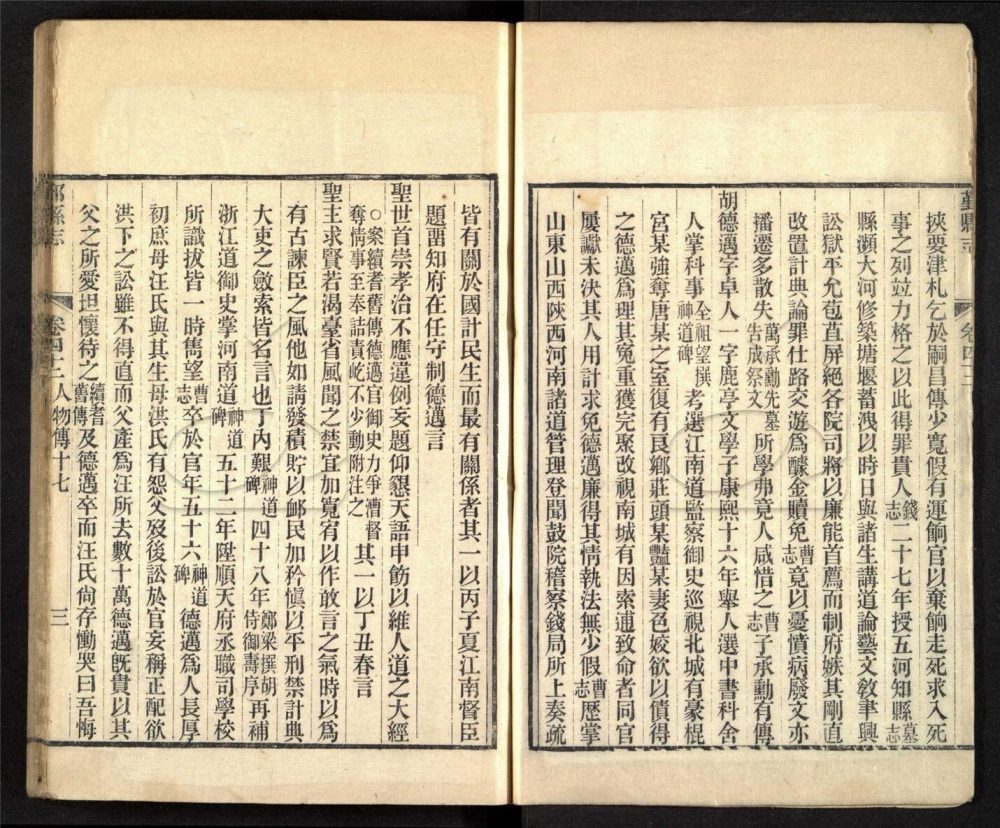 鄞縣志
卷四十二
挾要津札乞於嗣昌傳少寬假有運餉官以棄餉走死求入死
事之列竝力格之以此得罪貴人錢志二十七年授五河知縣墓志
縣瀕大河修築塘堰蓄洩以時日與諸生講道論藝文敎聿興
訟獄平允苞苴屏絕各院司將以廉能首薦而制府嫉其剛直
改置計典論罪仕路交遊爲醵金贖免曹志竟以憂憤病廢文亦
播遷多散失萬承勳先墓告成祭文所學弗竟人咸惜之曹志子承勳有傳
胡德邁字卓人一字鹿亭文學子康熙十六年舉人選中書科舍
人掌科事全祖望撰神道碑考選江南道監察御史巡視北城有豪棍
宮某強奪唐某之室復有良鄉莊頭某豔某妻色姣欲以債得
之德邁爲理其冤重獲完聚改視南城有因索逋致命者同官
屢讞未決其人用計求免德邁廉得其情執法無少假曹志歷掌
山東山西陝西河南諸道管理登聞鼓院稽察錢局所上奏疏
皆有關於國計民生而最有關係者其一以丙子夏江南督臣
題畱知府在任守制德邁言
聖世首崇孝治不應違例妄題仰懇天語申飭以維人道之大經
○案續耆舊傳德邁官御史力爭漕督奪情事至奉詰責屹不少動附注之其一以丁丑春言
聖主求賢若渴臺省風聞之禁宜加寬宥以作敢言之氣時以爲
有古諫臣之風他如請發積貯以邮民加矜愼以平刑禁計典
大吏之斂索皆名言也丁內艱神道碑四十八年鄭梁撰胡侍御壽序再補
浙江道御史掌河南道神道碑五十二年陞順天府丞職司學校
所識拔皆一時雋望曹志卒於官年五十六神道碑德邁爲人長厚
初庶母汪氏與其生母洪氏有怨父歿後訟於官妄稱正配欲
洪下之訟雖不得直而父產爲汪所去數十萬德邁旣貴以其
父之所愛坦懷待之續耆舊傳及德邁卒而汪氏尙存慟哭曰吾悔
鄞縣志
卷四十二
人物傳十七
三